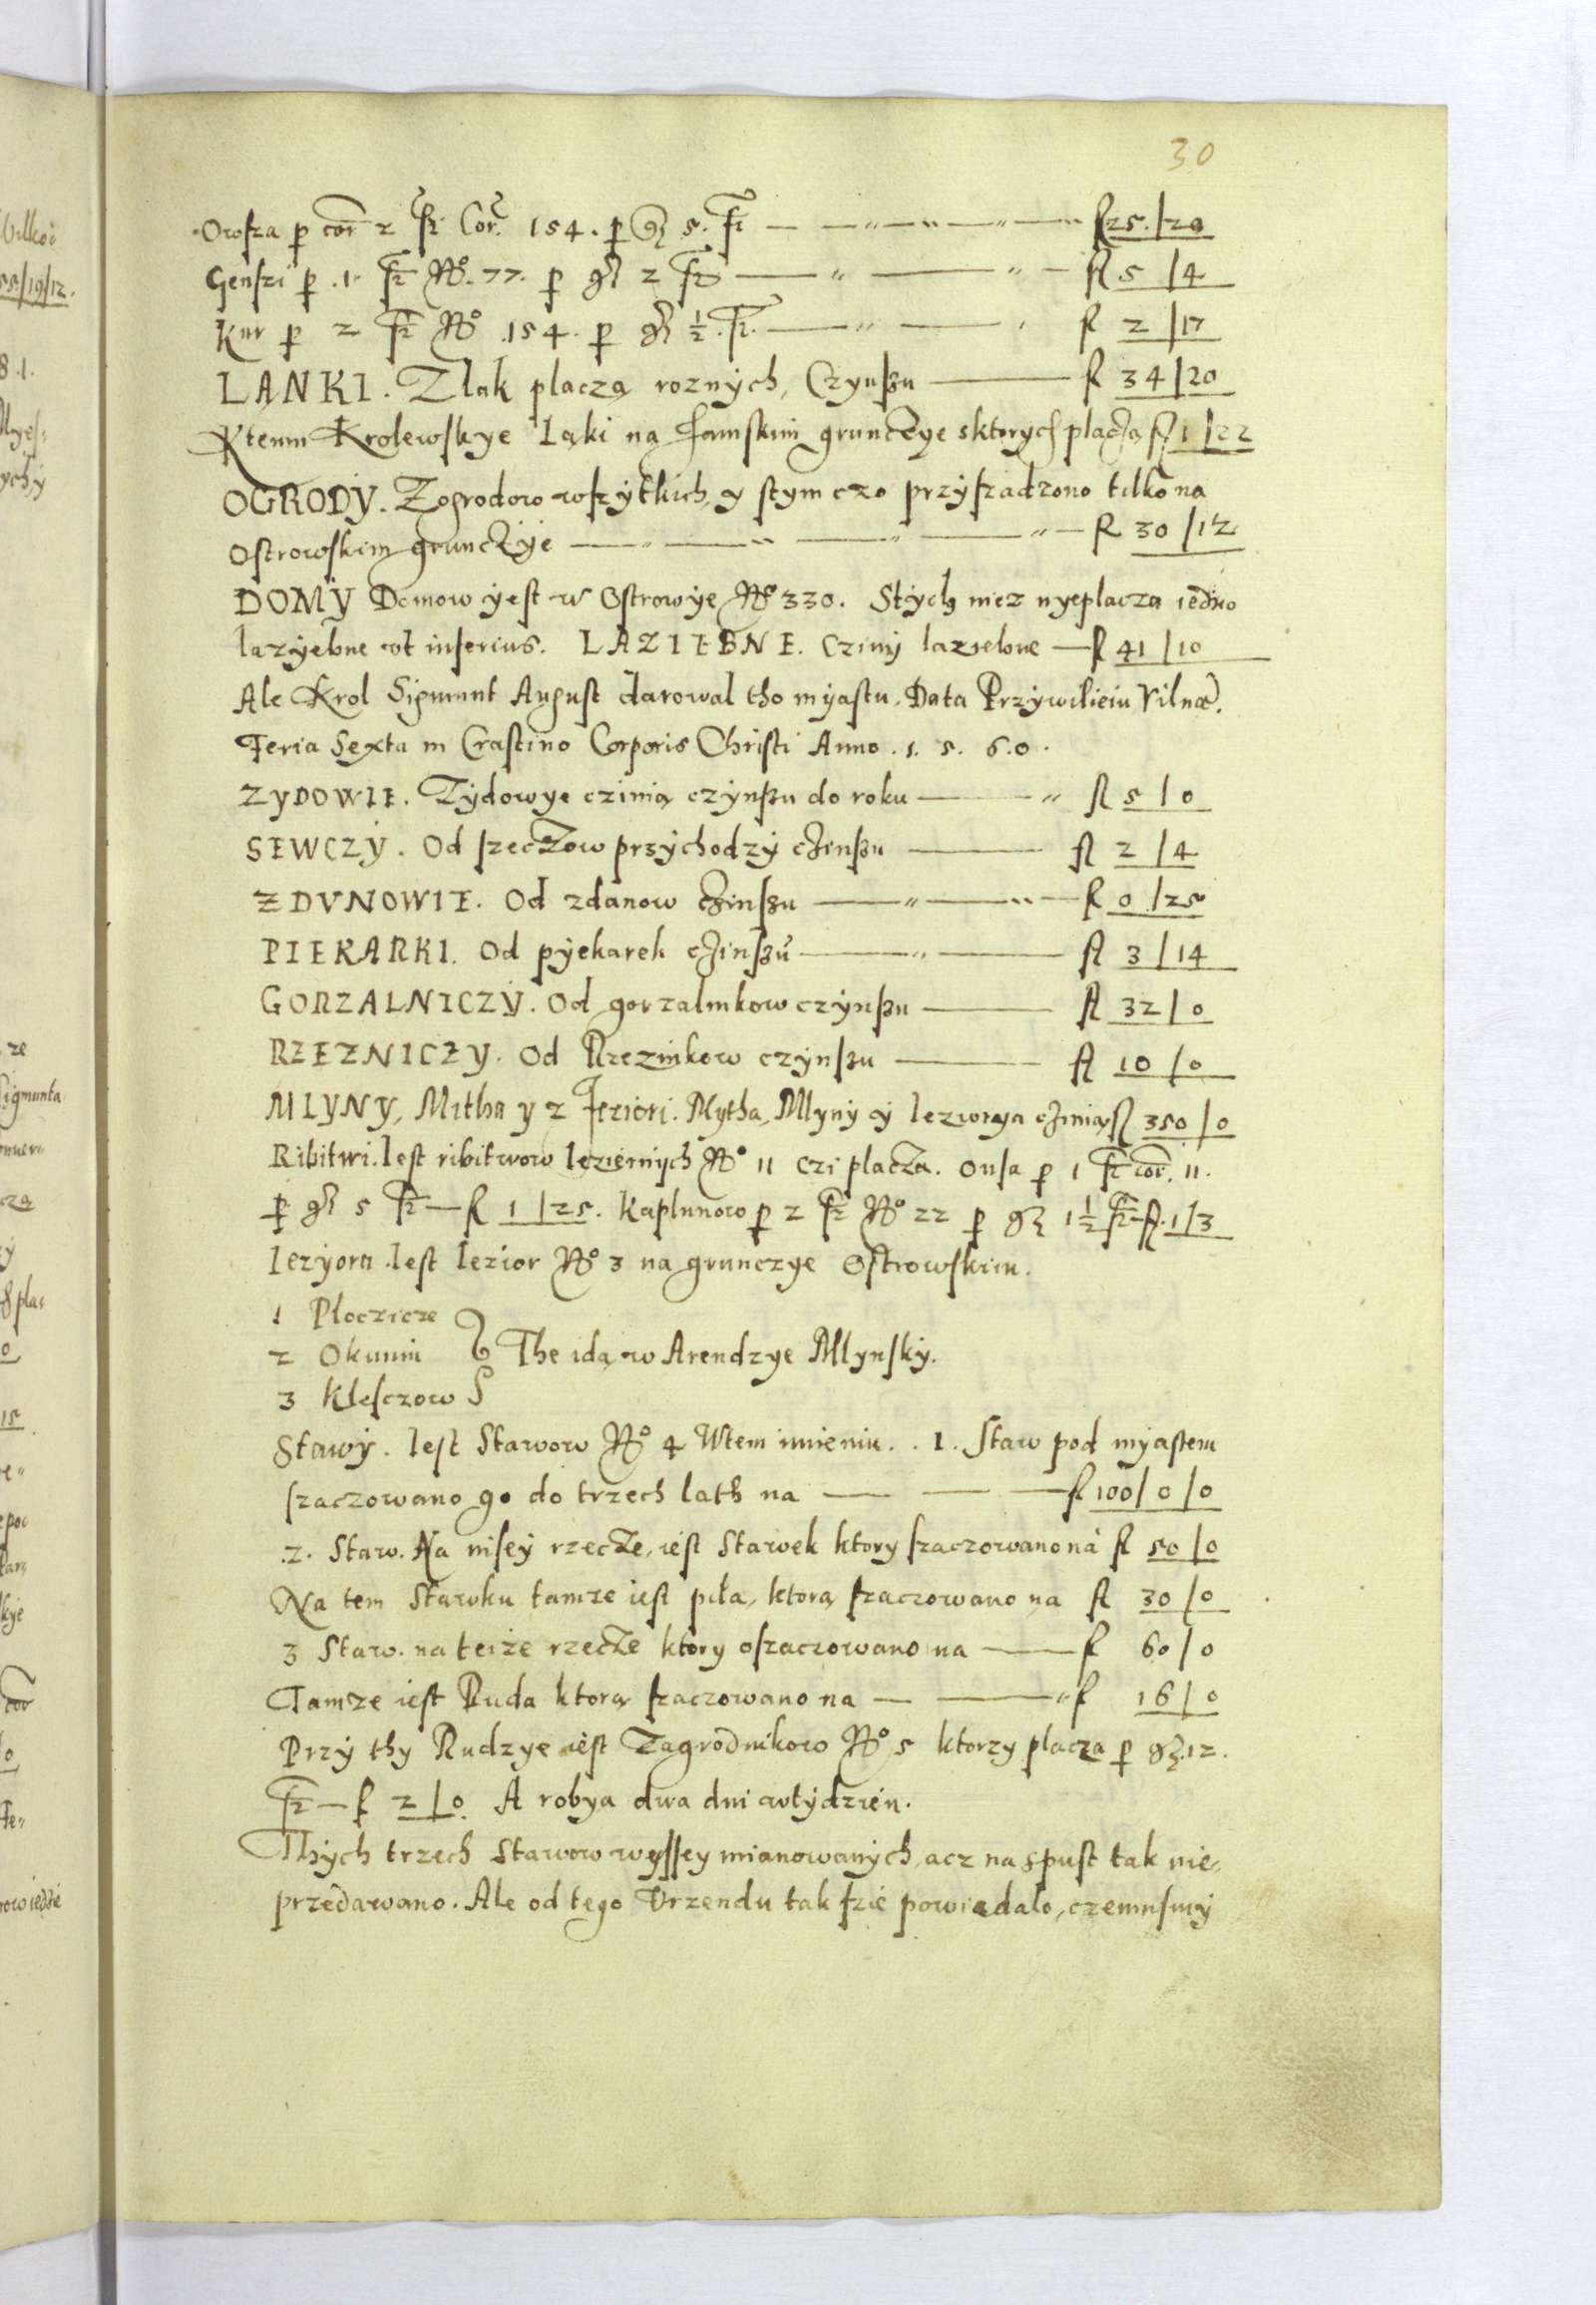 30
Owsza p cor 2 fr Cor. 154. p g 5. fr — fl 25./20
Genszi p .1. fr No. 77. p gr 2 fr — fl 5/4
Kur p 2 fr No 154. p gr ½. fr. — fl 2/17
LANKI. Z lak placzą roznych, Czynszu — fl 34/20
Ktemu Krolewskye Ląki ną gruncżye sktorych placzą fl 1/22
OGRODY. Zogrodow wszytkich, y stym czo przyszadzono tilko na
Ostrowskim gruncżye — fl 30/12
DOMY Domow yest w Ostrowye No 330. Stych nicz nyeplacza iedno
lazyebne vt inferius. LAZIEBNE. Cziny lazielone — fl 41/10
Ale Krol Sigmunt August darowal tho myastu. Data Przywilieiu Vilnæ.
Feria Sexta in Crastino Corporis Christi Anno .1.5.6.0.
ZYDOWIE. Zydowye czinią czynszu do roku — fl 5/0
SEWCZY. Od szeczow przychodzy czinszu — fl 2/4
ZDVNOWIE. Od zdanow czinszu — fl 0/25
PIEKARKI. Od pyekarek czinszu — fl 3/14
GORZALNICZY. Od gorzalnikow czynszu — fl 32/0
RZEZNICZY. Od Rzeznikow czynszu — fl 10/0
MLYNY, Mitha y z Jeziori. Mytha, Mlyny y Ieziorya czinią fl 350/0
Ribitwi. Iest ribitwow Ieziernych No 11 czi placzą. Owsa p 1 fr cor. 11.
p gr 5 fr — fl 1/25. Kaplunow p 2 fr No 22 p gr 1½ fr — fl. 1/3
Iezyora. Iest Iezior No 3 na grunczye Ostrowskim.
1 Ploczicze
2 Okunin The idą w Arendzye Mlynsky.
3 Klesczow
Stawy. Iest Stawow No 4 Wtem imieniu. . 1. Staw pod myastem
szaczowano go do trzech lath na — fl 100/0/0
.2. Staw. Na nisey rzecże, iest Stawek ktory szaczowano na fl 50/0
Na tem Stawku tamze iest piła, ktorą szaczowano na fl 30/0
3 Staw. na teiże rzecże ktory oszaczowano na — fl 60/0
Tamze iest Ruda ktorą szaczowano na — fl 16/0
Przy thy Rudzye iest Zagrodnikow No 5 ktorzy placzą p gr. 12.
fr — fl 2/0. A robya dwa dni wtydzien.
Thych trzech Stawow wyssey mianowanych, acz na spust tak nie
przedawano. Ale od tego Vrzendu tak szie powiedalo, czemusmy